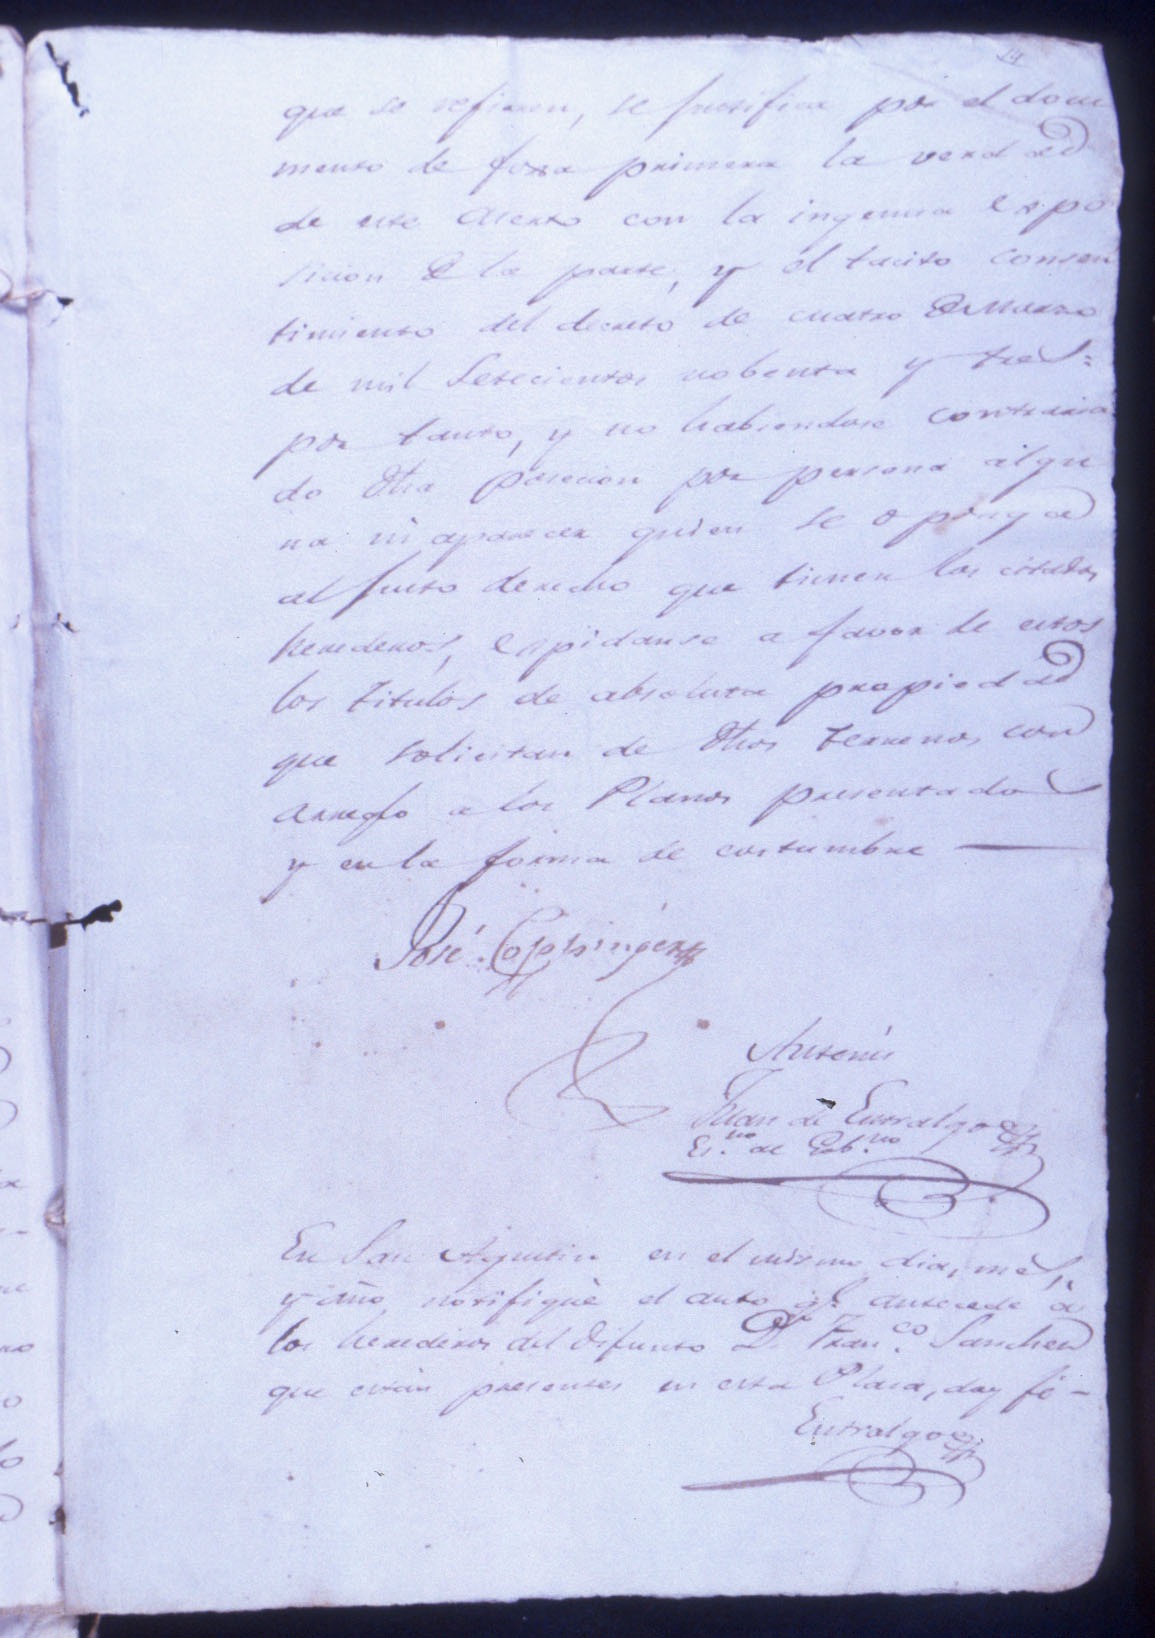 14
que se refieren, se justifica por el docu
mento de foxa primera la verdad
de este aserto con la ingenua expo
sicion de la parte, y el tacito consen
timiento del decreto de cuatro de Marzo
de mil Setecientos nobenta y tres:
por tanto, y no habiendose contraria
do dha posecion por persona algu
na ni aparecer quien se oponga
al justo derecho que tienen los citados
herederos, espidanse a favor de estos
los titulos de absoluta propiedad
que solicitan de dhos terrenos con
arreglo a los Planos presentados
y en la forma de costumbre —
José Coppinger
Antemi
Juan de Entralgo
Es.no de Gob.no
En San Agustin en el mismo dia, mes,
y año, notifiqué el auto q.e antecede a
los herederos del difunto D.n Fran.co Sanchez
que están presentes en esta Plaza, doy fé -
Entralgo